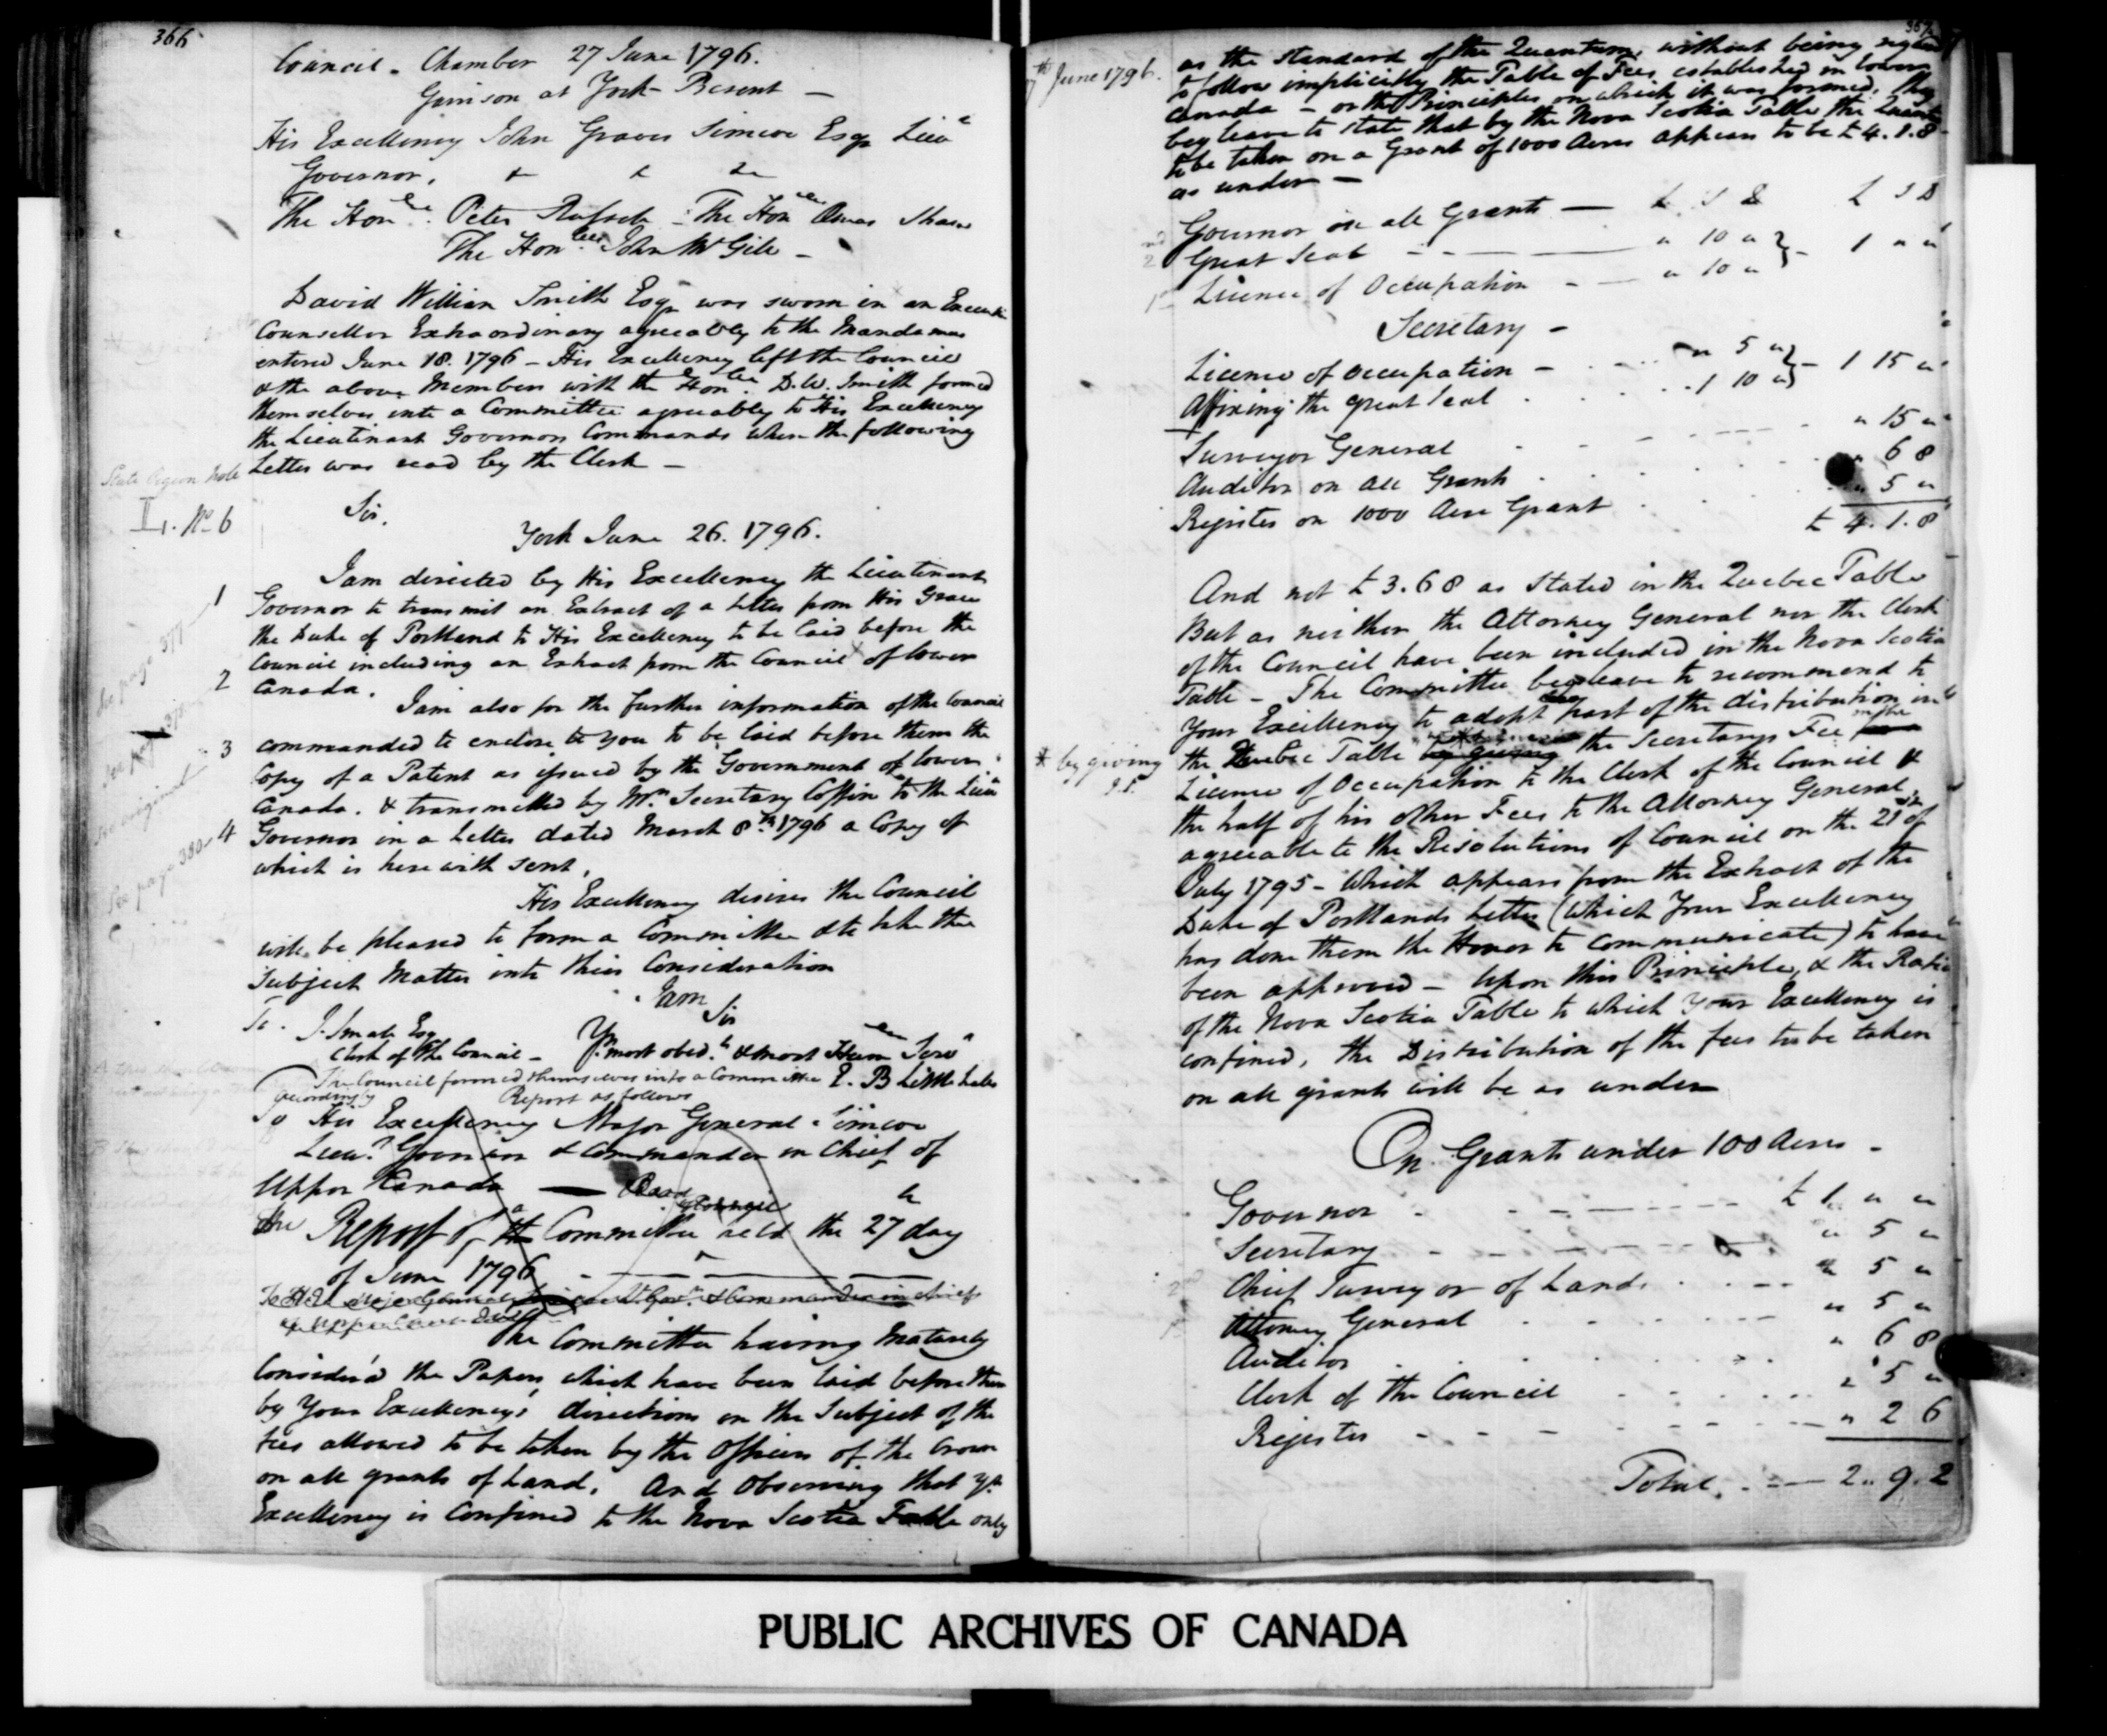 366
Council Chamber 27 June 1796.
Garrison at York Present —
His Excellency John Graves Simcoe Esqr Lieut
Governor, & & &c
The Honble Peter Russell - The Honble Æneas Shaw
The Honble John McGill -
David William Smith Esqr was sworn in an Executive
Counsellor Extraordinary agreeably to the Mandamus
entered June 18. 1796 - His Excellency left the Council
& the above Members with the Honble D. W. Smith formed
themselves into a Committee agreeably to His Excellency
the Lieutenant Governors Commands when the following
Letter was read by the Clerk —
State Pigeon Hole
I. No 6
Sir,
York June 26. 1796.
1
I am directed by His Excellency the Lieutenant
Governor to transmit an Extract of a Letter from His Grace
the Duke of Portland to His Excellency to be laid before the
Council including an Extract from the Council of lower
2 Canada.
I am also for the further information of the Council
3 commanded to enclose to you to be laid before them the
Copy of a Patent as issued by the Government of lower
Canada. & transmitted by Mr Secretary Coffin to the Lieut
4 Governor in a Letter dated March 8th 1796 a Copy of
which is herewith sent.
See page 377
See page 378
See original
See page 380
His Excellency desires the Council
will be pleased to form a Committee & to take the
Subject Matter into their Consideration
I am
Sir
To J. Small Esq
Clerk of the Council - Yr most obedt & most Hum Servt
The Council formed themselves into a Committee E. B Littlehales
accordingly Report as follows
To His Excellency Major General Simcoe
Lieut Governor & Commander in Chief of
Upper Canada — Read
Council
the Report of the Committee held the 27 day
of June 1796
To H. E. Major General Simcoe Lt Govr & Commander in Chief
of Upper Canada
The Committee having Maturely
Consider'd the Papers which have been laid before them
by Your Excellency's directions on the Subject of the
fees allowed to be taken by the Officers of the Crown
on all grants of Land. And Observing that Yr
Excellency is Confined to the Nova Scotia Table only
27th June 1796.
as the standard of the Quantum, without being
to follow implicitly the Table of Fees established in lower
Canada - or the Principles on which it was formed, they
beg leave to state that by the Nova Scotia Table the Quantum
to be taken on a Grant of 1000 Acres appears to be £ 4. 1. 8
as under —
Governor on all Grants — £ S D £ S D
Great Seal - - — " 10 " } - 1 " "
Licence of Occupation - — " 10 "
Secretary -
Licence of Occupation - " 5 " } - 1 15 "
Affixing the great Seal 1 10 "
Surveyor General " 15 "
Auditor on all Grants " 6 8
Register on 1000 Acre Grant " 5 "
£ 4. 1. 8
And not £ 3. 6 8 as Stated in the Quebec Table
But as neither the Attorney General nor the Clerk
of the Council have been included in the Nova Scotia
Table - The Committee beg leave to recommend to
Your Excellency to adopt part of the distribution in
the Quebec Table by giving the Secretarys Fee on the
* by giving
Licence of Occupation to the Clerk of the Council &
the half of his other Fees to the Attorney General,
agreeable to the Resolutions of Council on the 21st of
July 1795 - Which appears from the Extract of the
Duke of Portlands Letter (which Your Excellency
has done them the Honor to communicate) to have
been approved - Upon this Principle, & the Ratio
of the Nova Scotia Table to which Your Excellency is
confined, the Distribution of the fees to be taken
on all grants will be as under
On Grants under 100 Acres -
Governor - - - £ 1 " "
Secretary - - - " 5 "
Chief Surveyor of Lands - - " 5 "
Attorney General - - " 5 "
Auditor - - " 6 8
Clerk of the Council - - " 5 "
Register - - - " 2 6
Total - — 2 .. 9 . 2
PUBLIC ARCHIVES OF CANADA